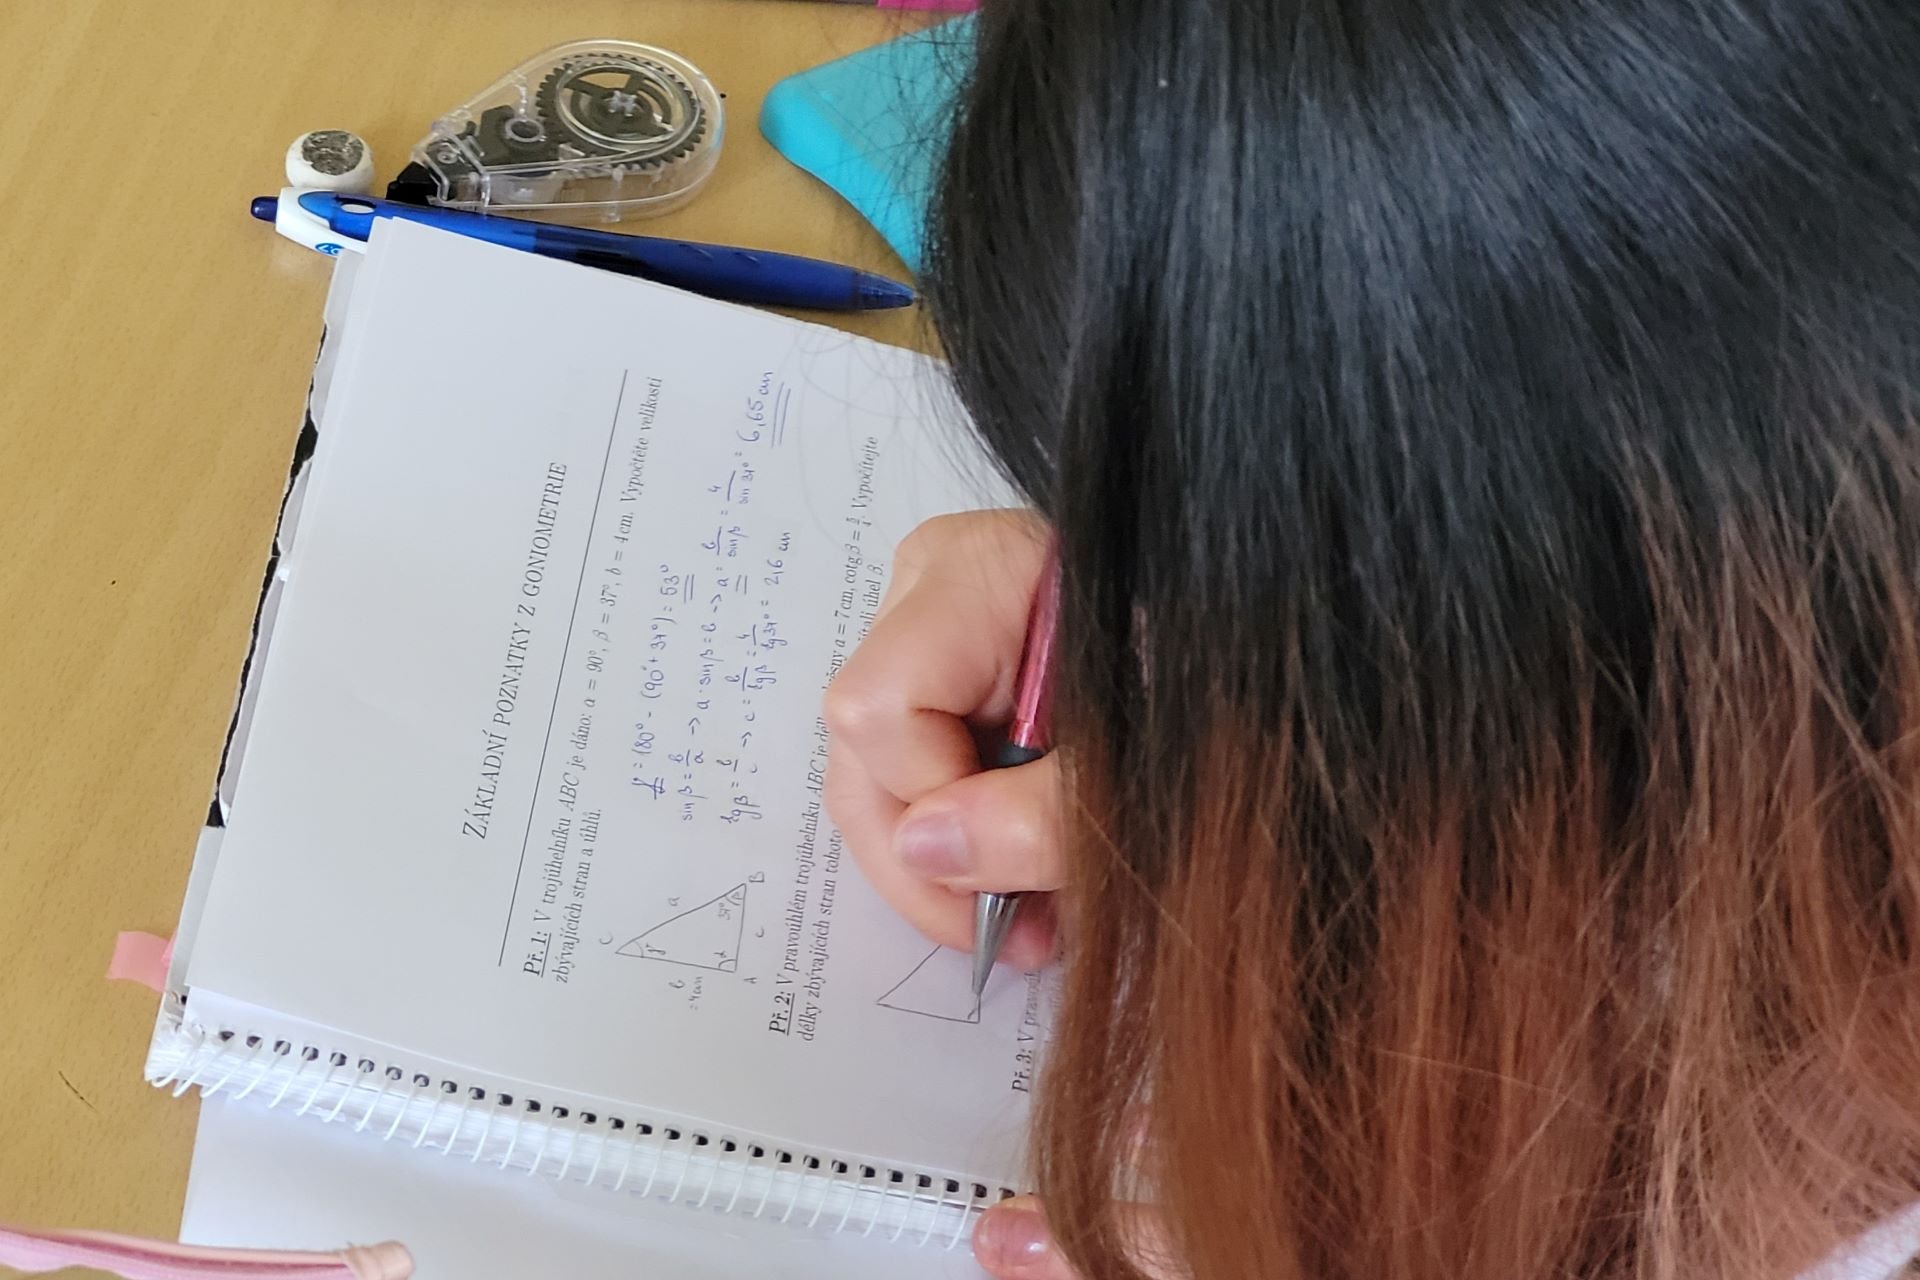 ZÁKLADNÍ POZNATKY Z GONIOMETRIE
Př. 1: V trojúhelníku ABC je dáno: α = 90°, β = 37°, b = 4 cm. Vypočtěte velikosti
zbývajících stran a úhlů.
C
γ
a
b
= 4cm
α
37°
β
A
c
B
γ = 180° - (90° + 37°) = 53°
sin β = b/a -> a · sin β = b -> a = b/sin β = 4/sin 37° = 6,65 cm
tg β = b/c -> c = b/tg β = 4/tg 37° = 2,6 cm
Př. 2: V pravoúhlém trojúhelníku ABC je a = 7 cm, cotg β = Vypočítejte
délky zbývajících stran tohoto úhel β.
Př. 3: V